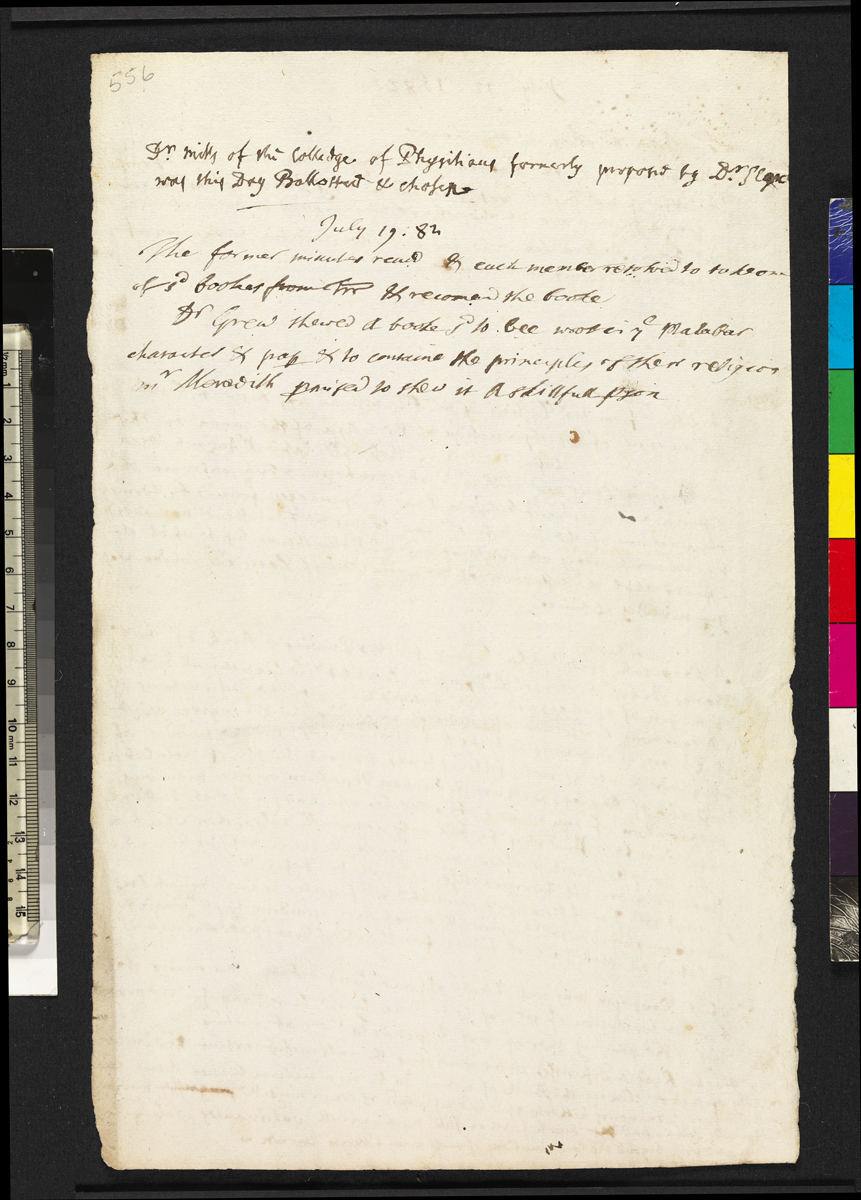 556
Dr. Mills of the Colledge of Physitians formerly propos'd by Dr. Slare
was this Day Ballotted & chosen
July 19. 82
The former minutes read & each member resolved to
of sd bookes from the & recomend the booke
Dr Grew shewed a booke sd to bee wrote in ye Malabar
character & pap & to containe the principles of their religion
Mr Meredith pmised to shew it a skillfull pson